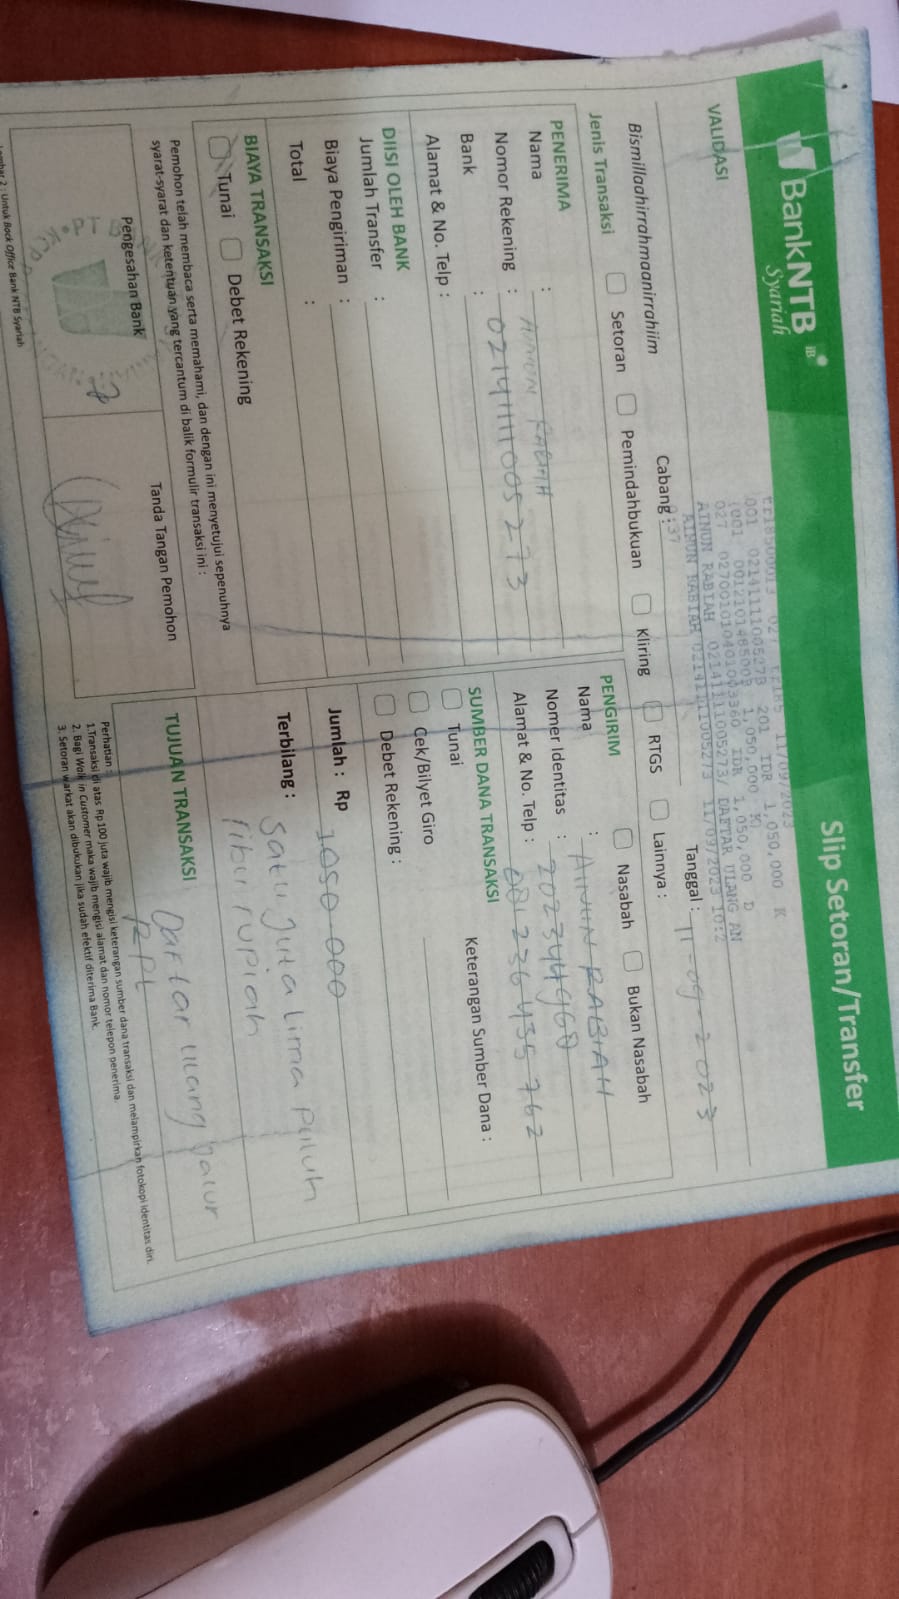 BankNTB iB
Syariah
Slip Setoran/Transfer
VALIDASI
11/09/2023
001 0214111100527B 201 IDR 1,050,000 K
1,050,000 K
027 IDR 1,050,000 D
AINUN RABIAH 02141111005273/ DAFTAR ULANG AN
AINUN RABIAH 02141111005273 11/09/2023 10:2
Bismillaahirrahmaanirrahiim
Cabang :
Tanggal : 11-09-2023
Jenis Transaksi
Setoran
Pemindahbukuan
Kliring
RTGS
Lainnya :
PENERIMA
Nama : AINUN RABIAH
Nomor Rekening : 02141111005273
Bank :
Alamat & No. Telp :
PENGIRIM
Nasabah
Bukan Nasabah
Nama : AINUN RABIAH
Nomer Identitas :
Alamat & No. Telp : 081236435762
DIISI OLEH BANK
Jumlah Transfer :
Biaya Pengiriman :
Total :
SUMBER DANA TRANSAKSI
Keterangan Sumber Dana :
Tunai
Cek/Bilyet Giro
Debet Rekening :
BIAYA TRANSAKSI
Tunai
Debet Rekening
Jumlah : Rp 1.050.000
Terbilang : Satu juta lima puluh
ribu rupiah
Pemohon telah membaca serta memahami, dan dengan ini menyetujui sepenuhnya
syarat-syarat dan ketentuan yang tercantum di balik formulir transaksi ini :
TUJUAN TRANSAKSI
Daftar ulang jalur
RPL
Pengesahan Bank
Tanda Tangan Pemohon
Perhatian :
1.Transaksi di atas Rp 100 juta wajib mengisi keterangan sumber dana transaksi dan melampirkan fotokopi identitas diri.
2. Bagi Walk in Customer maka wajib mengisi alamat dan nomor telepon penerima.
3. Setoran warkat akan dibukukan jika sudah efektif diterima Bank.
Lembar 2 : Untuk Back Office Bank NTB Syariah